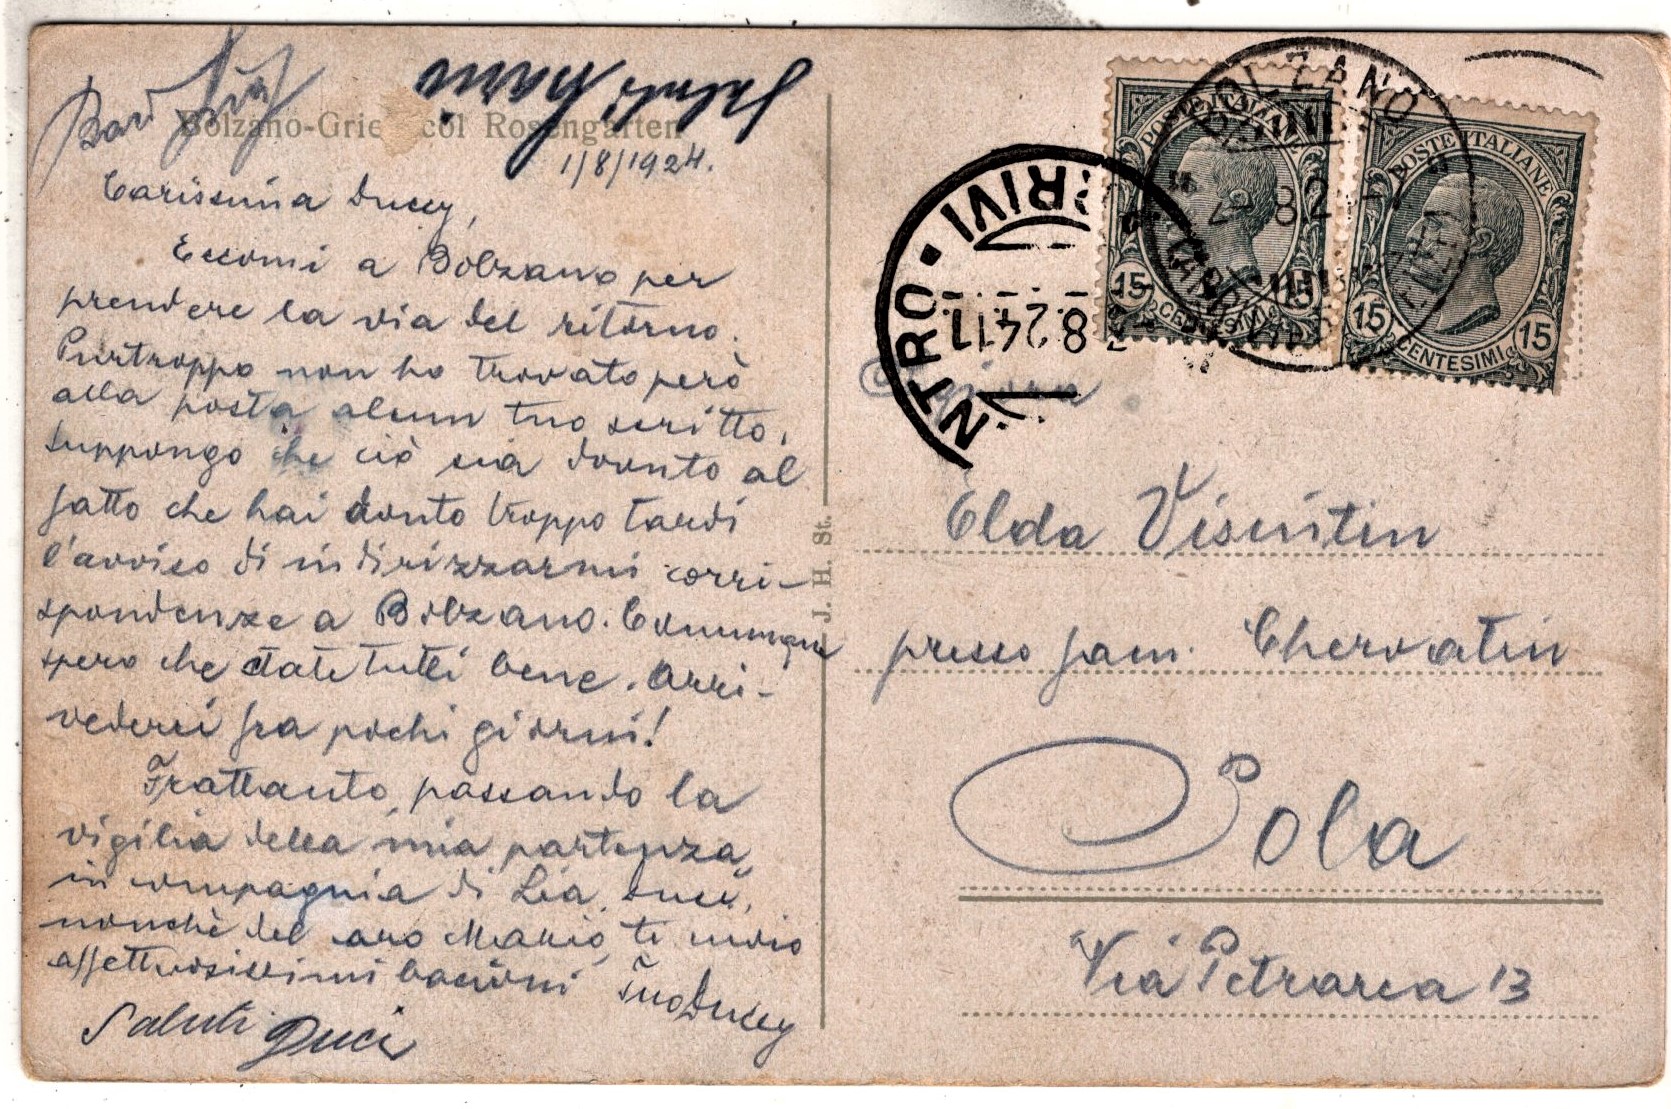 Baci Lia
Saluti Mario
Bolzano-Gries col Rosengarten
1/8/1924.
Carissima Duccy,
Eccomi a Bolzano per
prendere la via del ritorno.
Purtroppo non ho trovato però
alla posta alcun tuo scritto,
suppongo che ciò sia dovuto al
fatto che hai avuto troppo tardi
l'avviso di indirizzarmi corri-
spondenze a Bolzano. Comunque
spero che state tutti bene. Arri-
vederci fra pochi giorni!
Frattanto, passando la
vigilia della mia partenza,
in compagnia di Lia, Duci,
nonchè del caro Mario, ti invio
affettuosissimi bacioni
Tuo Duccy
Saluti Duci
J. H. St.
BOLZANO
NTRO · RIVI
8.24 11
POSTE ITALIANE
15 CENTESIMI 15
POSTE ITALIANE
15 CENTESIMI 15
Elda Visintin
presso fam. Chervatin
Pola
Via Petrarca 13